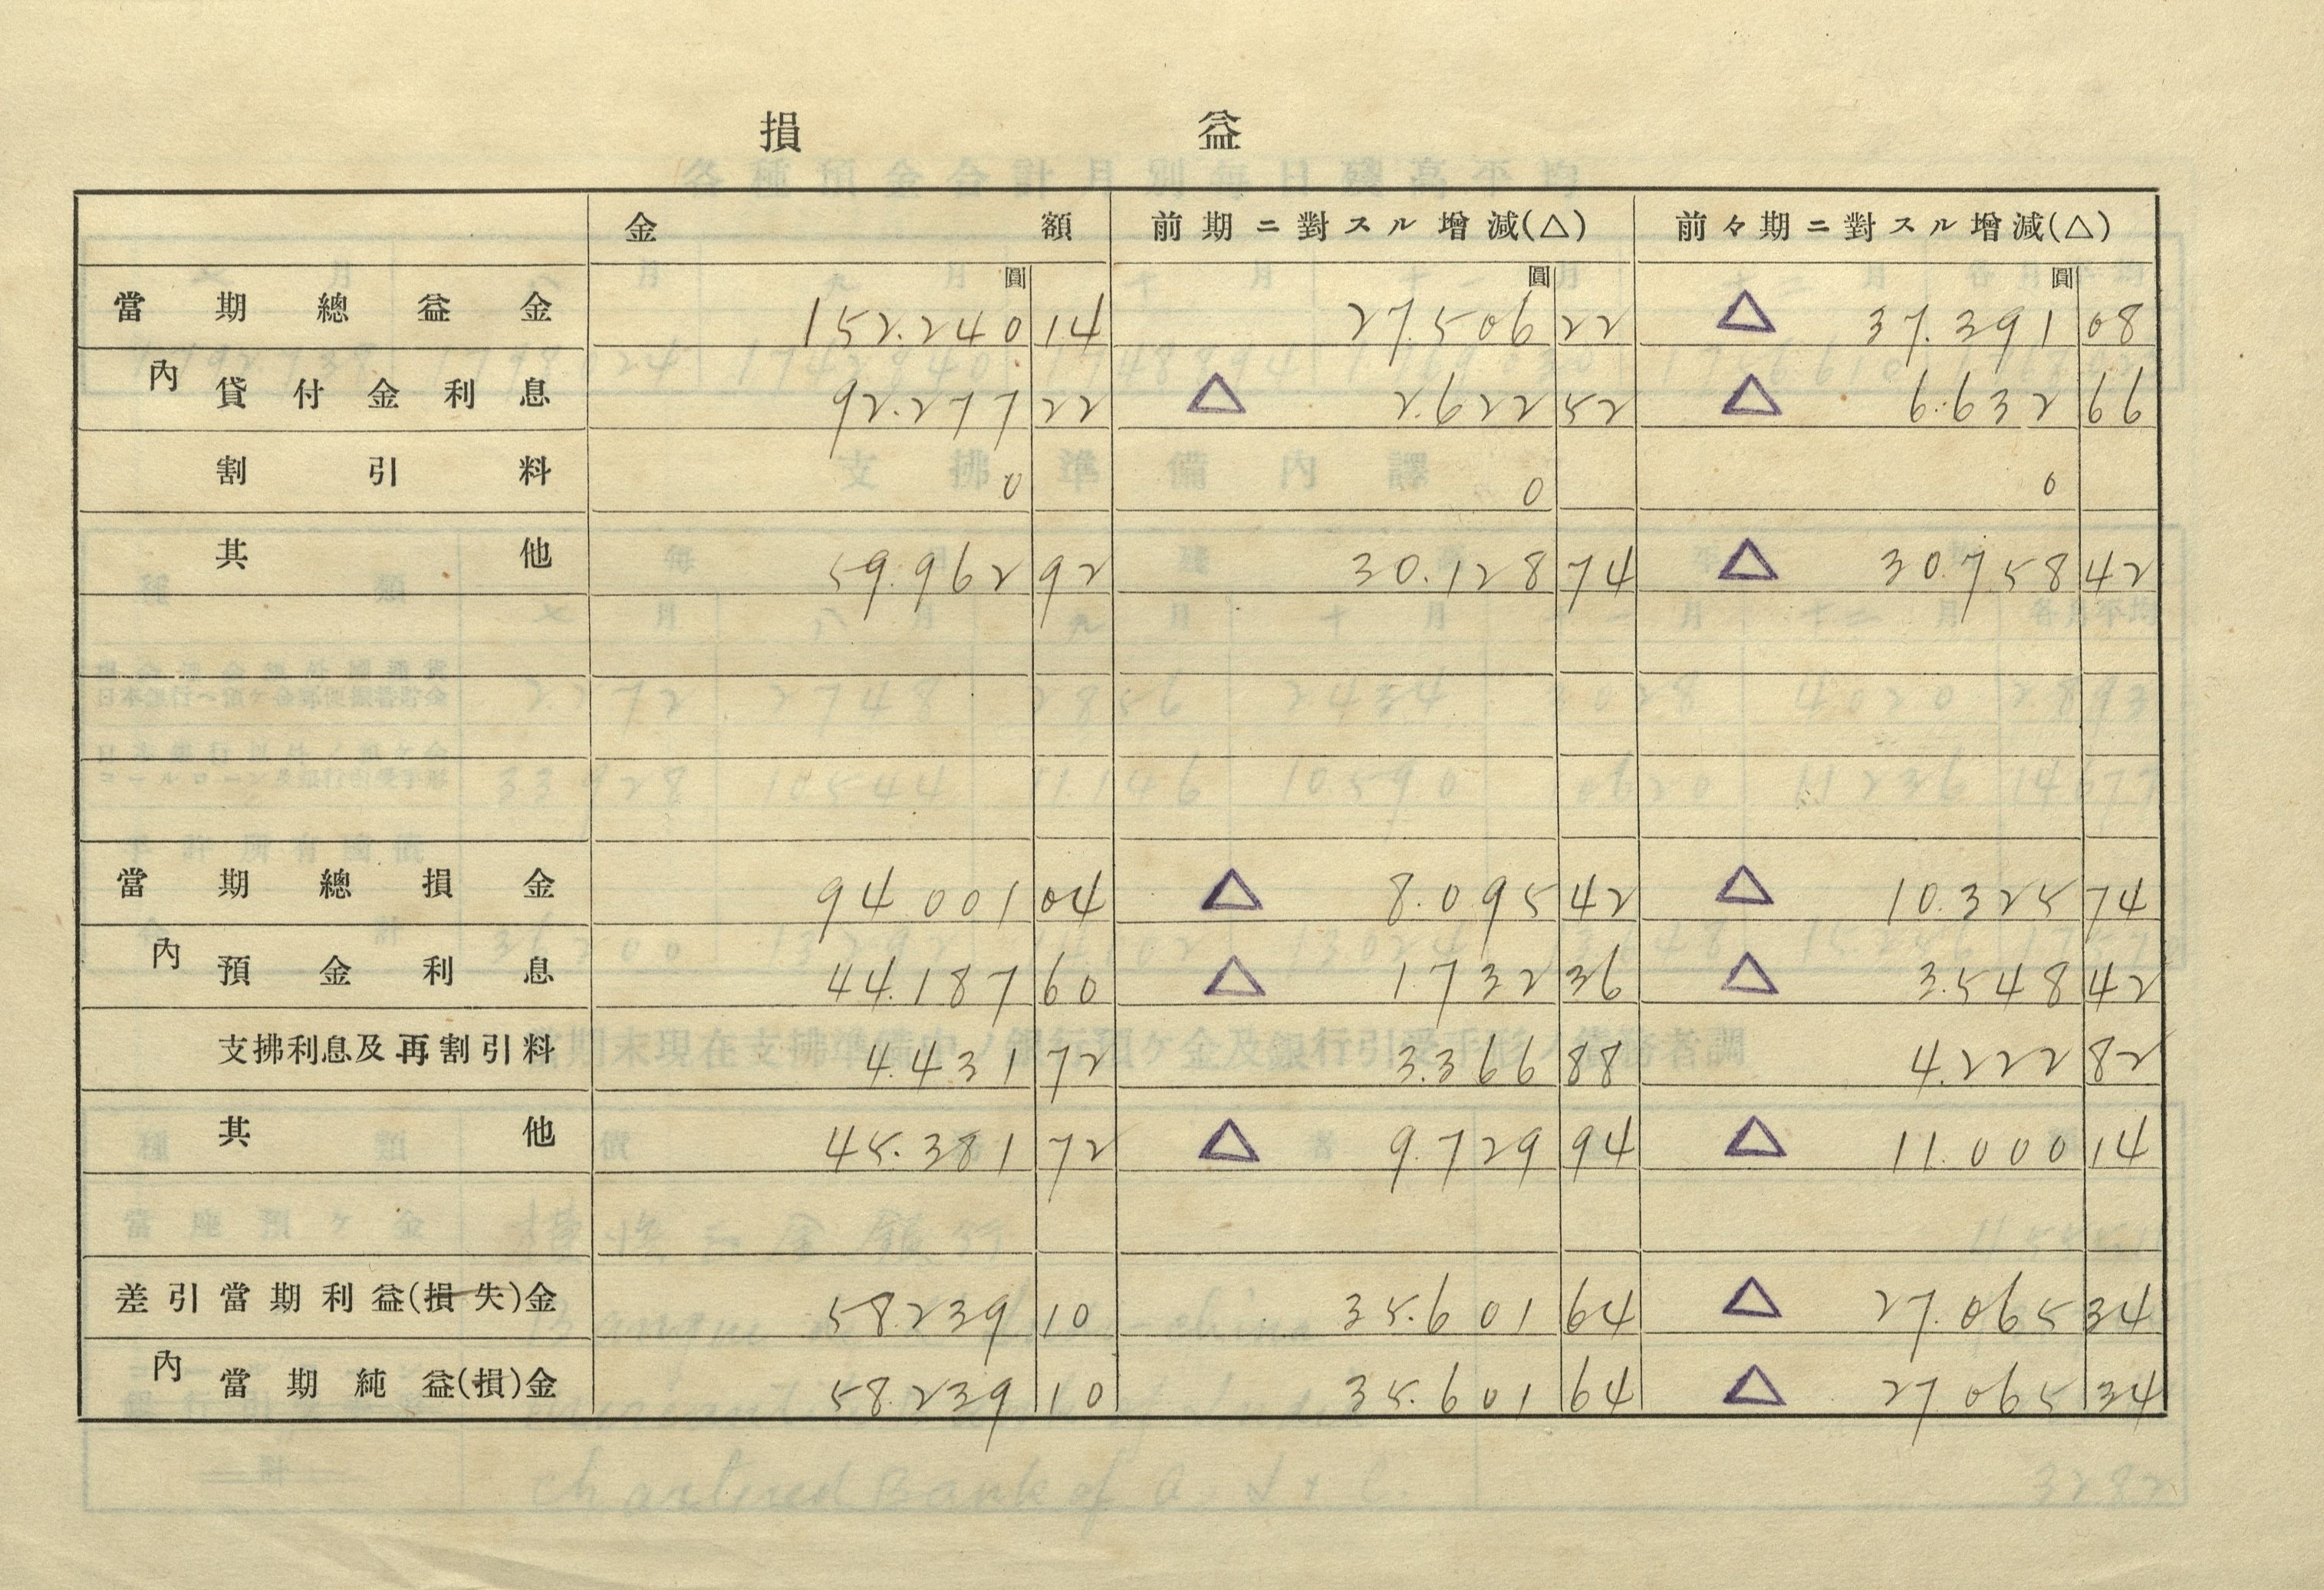 損 益
金 額 前期ニ對スル增減(△) 前々期ニ對スル增減(△)
圓 圓 圓
當期總益金 152.240 14 27.506 22 △ 37.391 08
內 貸付金利息 92.277 22 △ 2.622 52 △ 6.632 66
割引料 0 0 0
其他 59.962 92 30.128 74 △ 30.758 42
當期總損金 94 001 04 △ 8.095 42 △ 10.325 74
內 預金利息 44.187 60 △ 1732 36 △ 3.548 42
支拂利息及再割引料 4.431 72 3.366 88 4.222 82
其他 45.381 72 △ 9.729 94 △ 11.000 14
差引當期利益(損失)金 58.239 10 35.601 64 △ 27.065 34
內 當期純益(損)金 58.239 10 35.601 64 △ 27 065 34